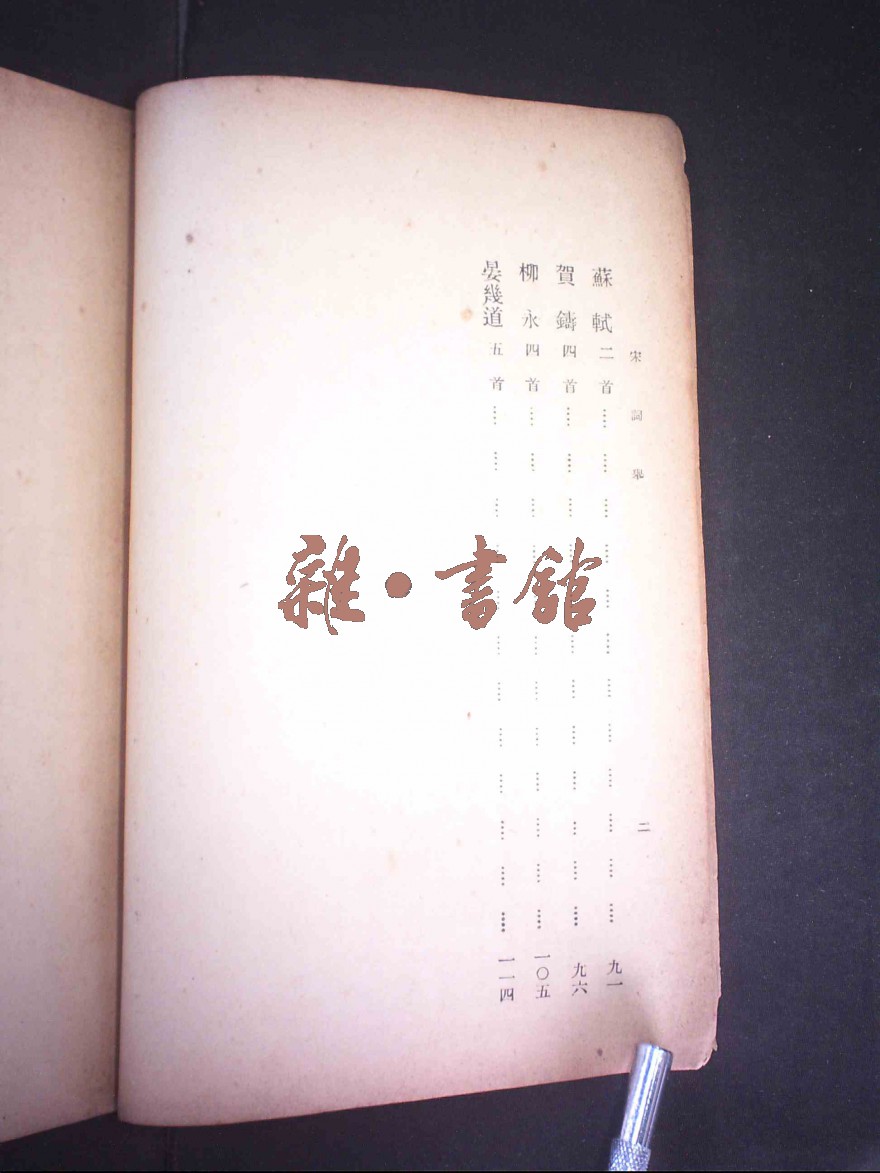 宋詞舉 二
蘇軾 二首………………九一
賀鑄 四首………………九六
柳永 四首………………一〇五
晏幾道 五首………………一一四
雜·書館